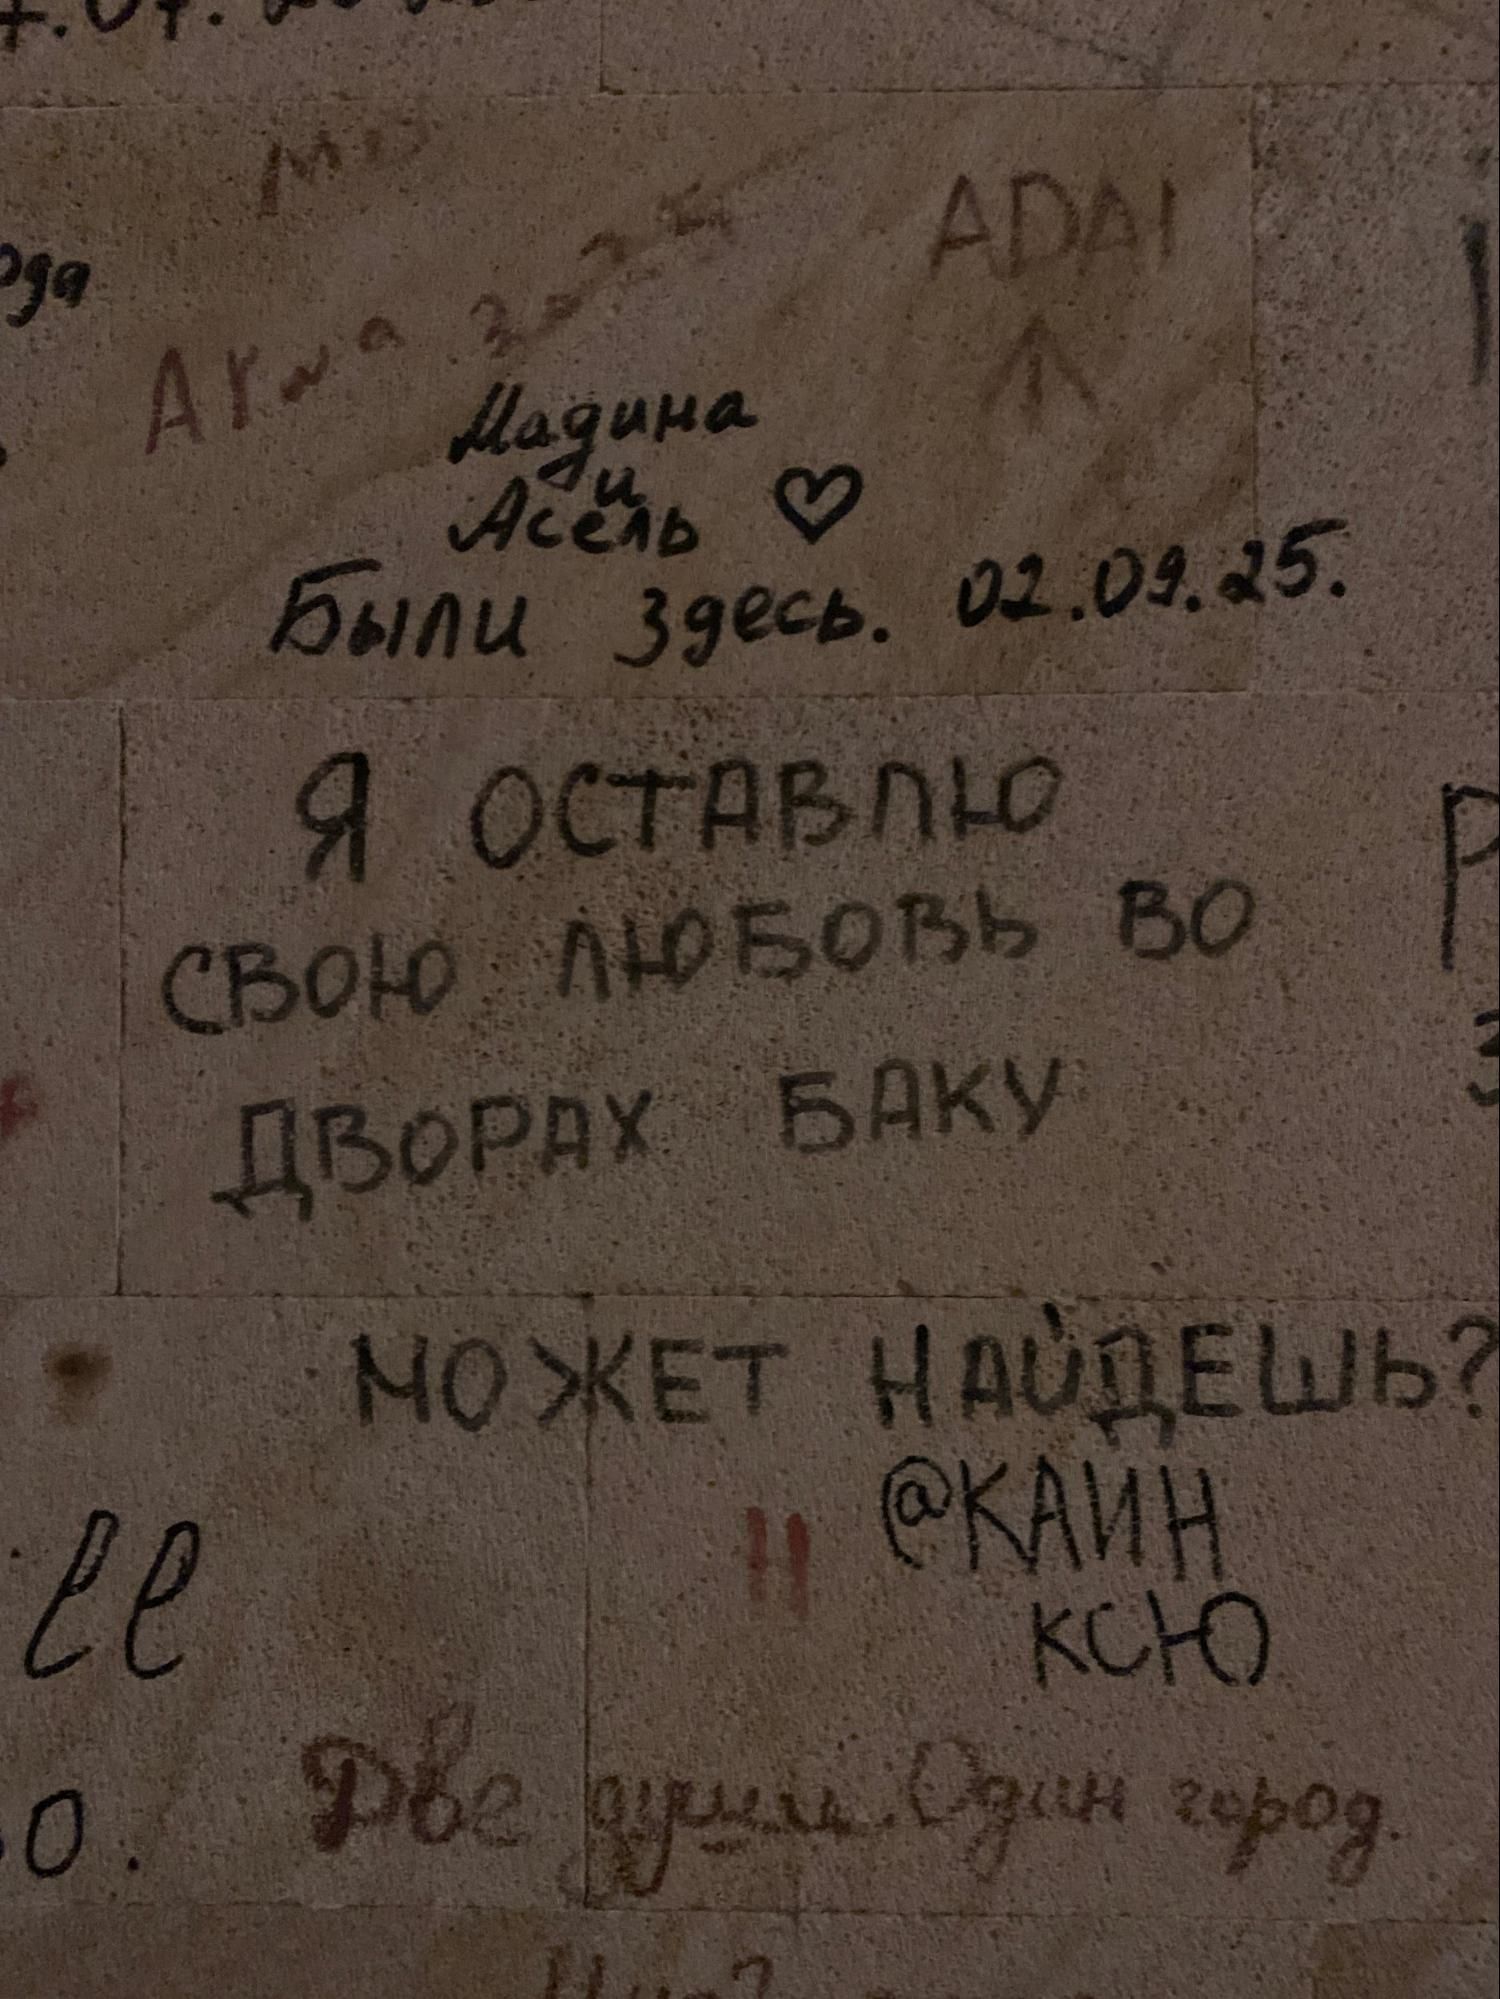 ADAI
Мадина
и
Асель ♡
Были здесь. 02.09.25.
Я ОСТАВЛЮ
СВОЮ ЛЮБОВЬ ВО
ДВОРАХ БАКУ
МОЖЕТ НАЙДЕШЬ?
@КАИН
КСЮ
Две души. Один город.